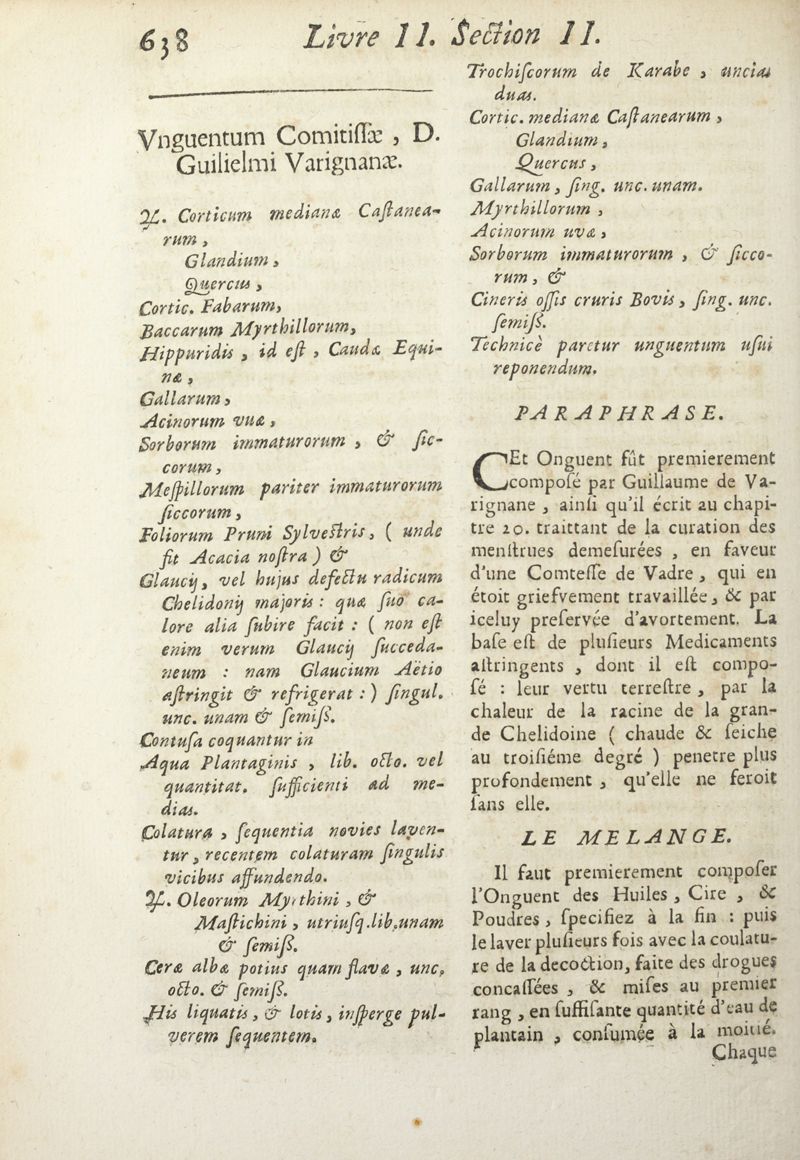 638
Livre II. Section II.
Vnguentum Comitissæ , D.
Guilielmi Varignanæ.
♃. Corticum medianæ Castanea-
rum ,
Glandium ,
Quercus ,
Cortic. Fabarum,
Baccarum Myrthillorum,
Hippuridis , id est , Caudæ Equi-
næ ,
Gallarum ,
Acinorum vuæ ,
Sorborum immaturorum , & sic-
corum ,
Mespillorum pariter immaturorum
siccorum ,
Foliorum Pruni Sylvestris , ( unde
fit Acacia nostra ) &
Glaucij , vel hujus defectu radicum
Chelidonij majoris : quæ suo ca-
lore alia subire facit : ( non est
enim verum Glaucij succeda-
neum : nam Glaucium Aëtio
astringit & refrigerat : ) singul.
unc. unam & semiss.
Contusa coquantur in
Aqua Plantaginis , lib. octo. vel
quantitat. sufficienti ad me-
dias.
Colatura , sequentia novies laven-
tur , recentem colaturam singulis
vicibus affundendo.
♃. Oleorum Myrthini , &
Mastichini , utriusq.lib.unam
& semiss.
Ceræ albæ potius quam flavæ , unc.
octo. & semiss.
His liquatis , & lotis , insperge pul-
verem sequentem.
Trochiscorum de Karabe , uncias
duas.
Cortic. medianæ Castanearum ,
Glandium ,
Quercus ,
Gallarum , sing. unc. unam.
Myrthillorum ,
Acinorum uvæ ,
Sorborum immaturorum , & sicco-
rum , &
Cineris ossis cruris Bovis , sing. unc.
semiss.
Technicè paretur unguentum usui
reponendum.
PARAPHRASE.
CEt Onguent fût premierement
composé par Guillaume de Va-
rignane , ainsi qu'il écrit au chapi-
tre 20. traittant de la curation des
menstrues demesurées , en faveur
d'une Comtesse de Vadre , qui en
étoit griefvement travaillée, & par
iceluy preservée d'avortement. La
base est de plusieurs Medicaments
astringents , dont il est compo-
sé : leur vertu terrestre , par la
chaleur de la racine de la gran-
de Chelidoine ( chaude & seiche
au troisiéme degré ) penetre plus
profondement , qu'elle ne feroit
sans elle.
LE MELANGE.
Il faut premierement composer
l'Onguent des Huiles , Cire , &
Poudres , specifiez à la fin : puis
le laver plusieurs fois avec la coulatu-
re de la decoction, faite des drogues
concassées , & mises au premier
rang , en suffisante quantité d'eau de
plantain , consumée à la moitié.
Chaque